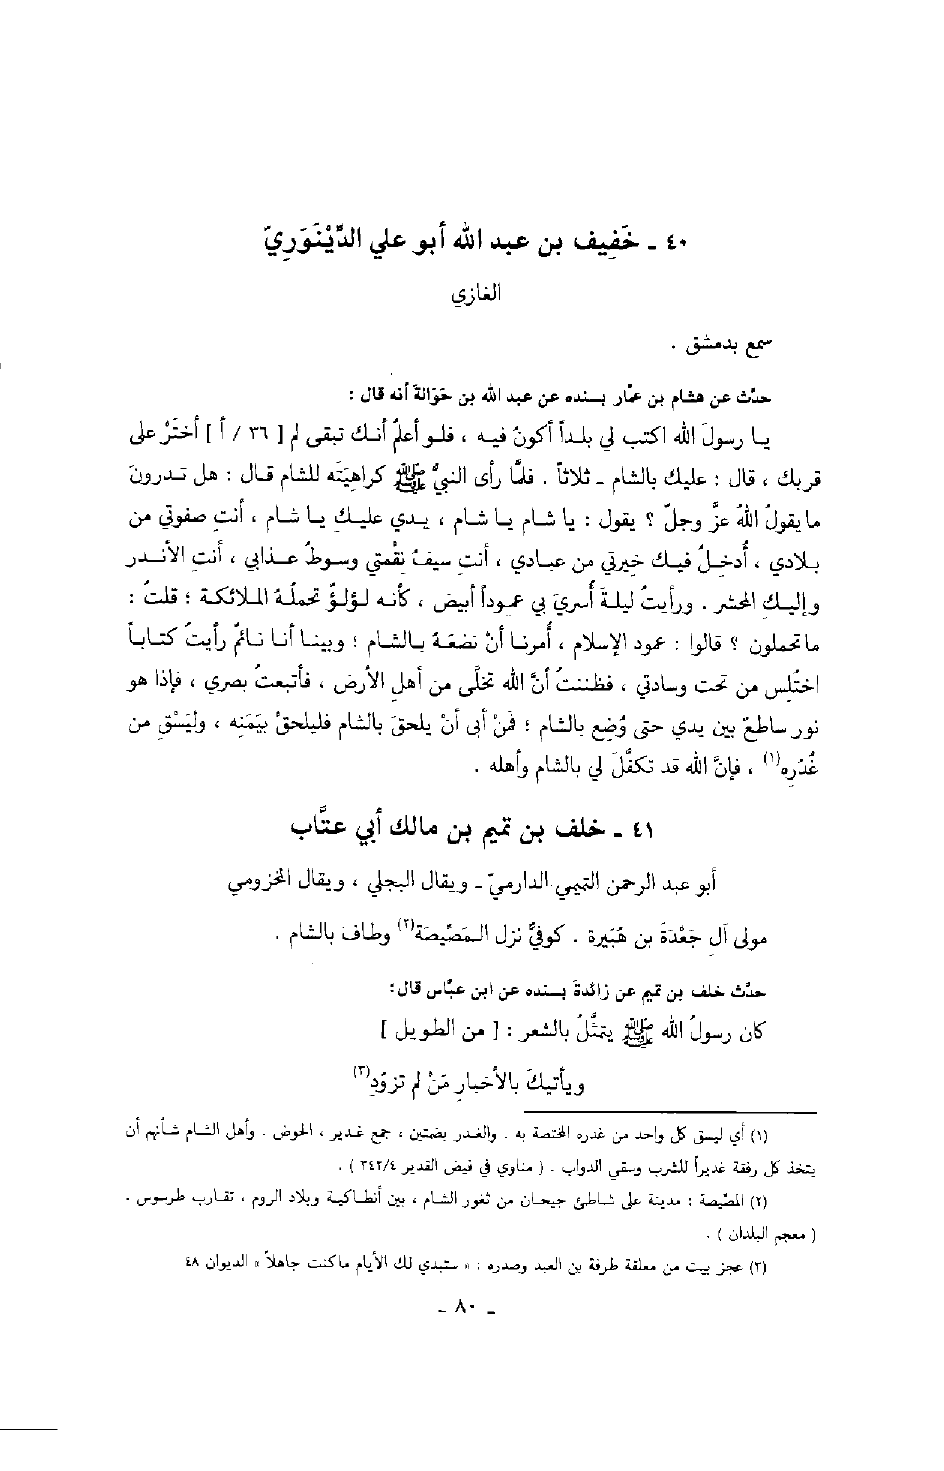 ٤٠ ـ خَفِيف بن عبد الله أبو علي الدِّيْنَوَرِيّ
الغازي
سمع بدمشق .
حدّث عن هشام بن عمّار بسنده عن عبد الله بن حَوَالة أنه قال :
يا رسولَ الله اكتب لي بلداً أكونُ فيه ، فلو أعلمُ أنك تبقى لم [ ٣٦ / أ ] أختَرْ على
قربك ، قال : عليك بالشام ـ ثلاثاً . فلمَّا رأى النبيُّ ﷺ كراهيَته للشام قال : هل تدرونَ
ما يقولُ اللهُ عزَّ وجلّ ؟ يقول : يا شام يا شام ، يدي عليك يا شام ، أنتِ صفوتي من
بلادي ، أُدخِلُ فيك خِيرتي من عبادي ، أنتِ سيفُ نِقْمتي وسوطُ عذابي ، أنتِ الأندر
وإليك المحشر . ورأيتُ ليلةَ أُسريَ بي عموداً أبيض ، كأنه لؤلؤ تحملُه الملائكة ؛ قلتُ :
ما تحملون ؟ قالوا : عمود الإسلام ، أُمرنا أنْ نضعَهُ بالشام ؛ وبينا أنا نائمٌ رأيتُ كتاباً
اختُلِس من تحت وسادتي ، فظننتُ أنَّ الله تخلَّى من أهل الأرض ، فأتبعتُ بصري ، فإذا هو
نور ساطعٌ بين يدي حتى وُضِع بالشام ؛ فمَنْ أبى أنْ يلحقَ بالشام فليلحقْ بيَمَنِه ، وليَسْقِ من
غُدُرِه(١) ، فإنَّ الله قد تكفَّلَ لي بالشام وأهله .
٤١ ـ خلف بن تميم بن مالك أبي عتَّاب
أبو عبد الرحمن التميمي الدارميّ ـ ويقال البجلي ، ويقال المخزومي
مولى آل جَعْدَةَ بن هُبَيرة . كوفيٌّ نزل المَصِّيصَة(٢) وطاف بالشام .
حدَّث خلف بن تميم عن زائدةَ بسنده عن ابن عبّاس قال:
كان رسولُ الله ﷺ يتمثَّلُ بالشعر : [ من الطويل ]
ويأتيكَ بالأخبارِ مَنْ لم تزوّدِ(٣)
(١) أي ليسق كل واحد من غدره المختصة به . والغدر بضمتين ، جمع غدير ، الحوض . وأهل الشام شأنهم أن
يتخذ كل رفقة غديراً للشرب وسقي الدواب . ( مناوي في فيض القدير ٣٤٢/٤ ) .
(٢) المصّيصة : مدينة على شاطئ جيحان من ثغور الشام ، بين أنطاكية وبلاد الروم ، تقارب طرسوس .
( معجم البلدان ) .
(٣) عجز بيت من معلقة طرفة بن العبد وصدره : « ستبدي لك الأيام ما كنت جاهلاً » الديوان ٤٨
ـ ٨٠ ـ